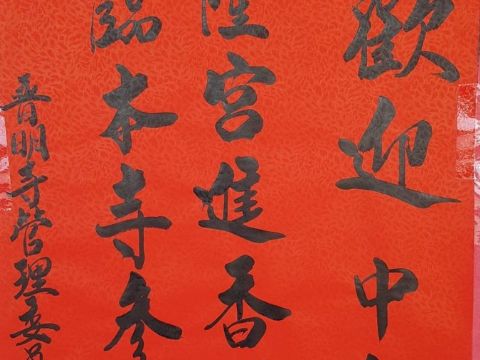 歡迎中
宮進香
臨本寺參
普明寺管理委